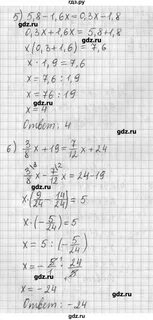 gdz.ru
5) 5,8 - 1,6x = 0,3x - 1,8
0,3x + 1,6x = 5,8 + 1,8
x(0,3 + 1,6) = 7,6
x · 1,9 = 7,6
x = 7,6 : 1,9
x = 76 : 19
x = 4
Ответ: 4
6) 3/8 x + 19 = 7/12 x + 24
3/8 x - 7/12 x = 24 - 19
x · (9/24 - 14/24) = 5
x · (- 5/24) = 5
x = 5 : (- 5/24)
x = - 5/1 · 24/5
x = - 24
Ответ: - 24